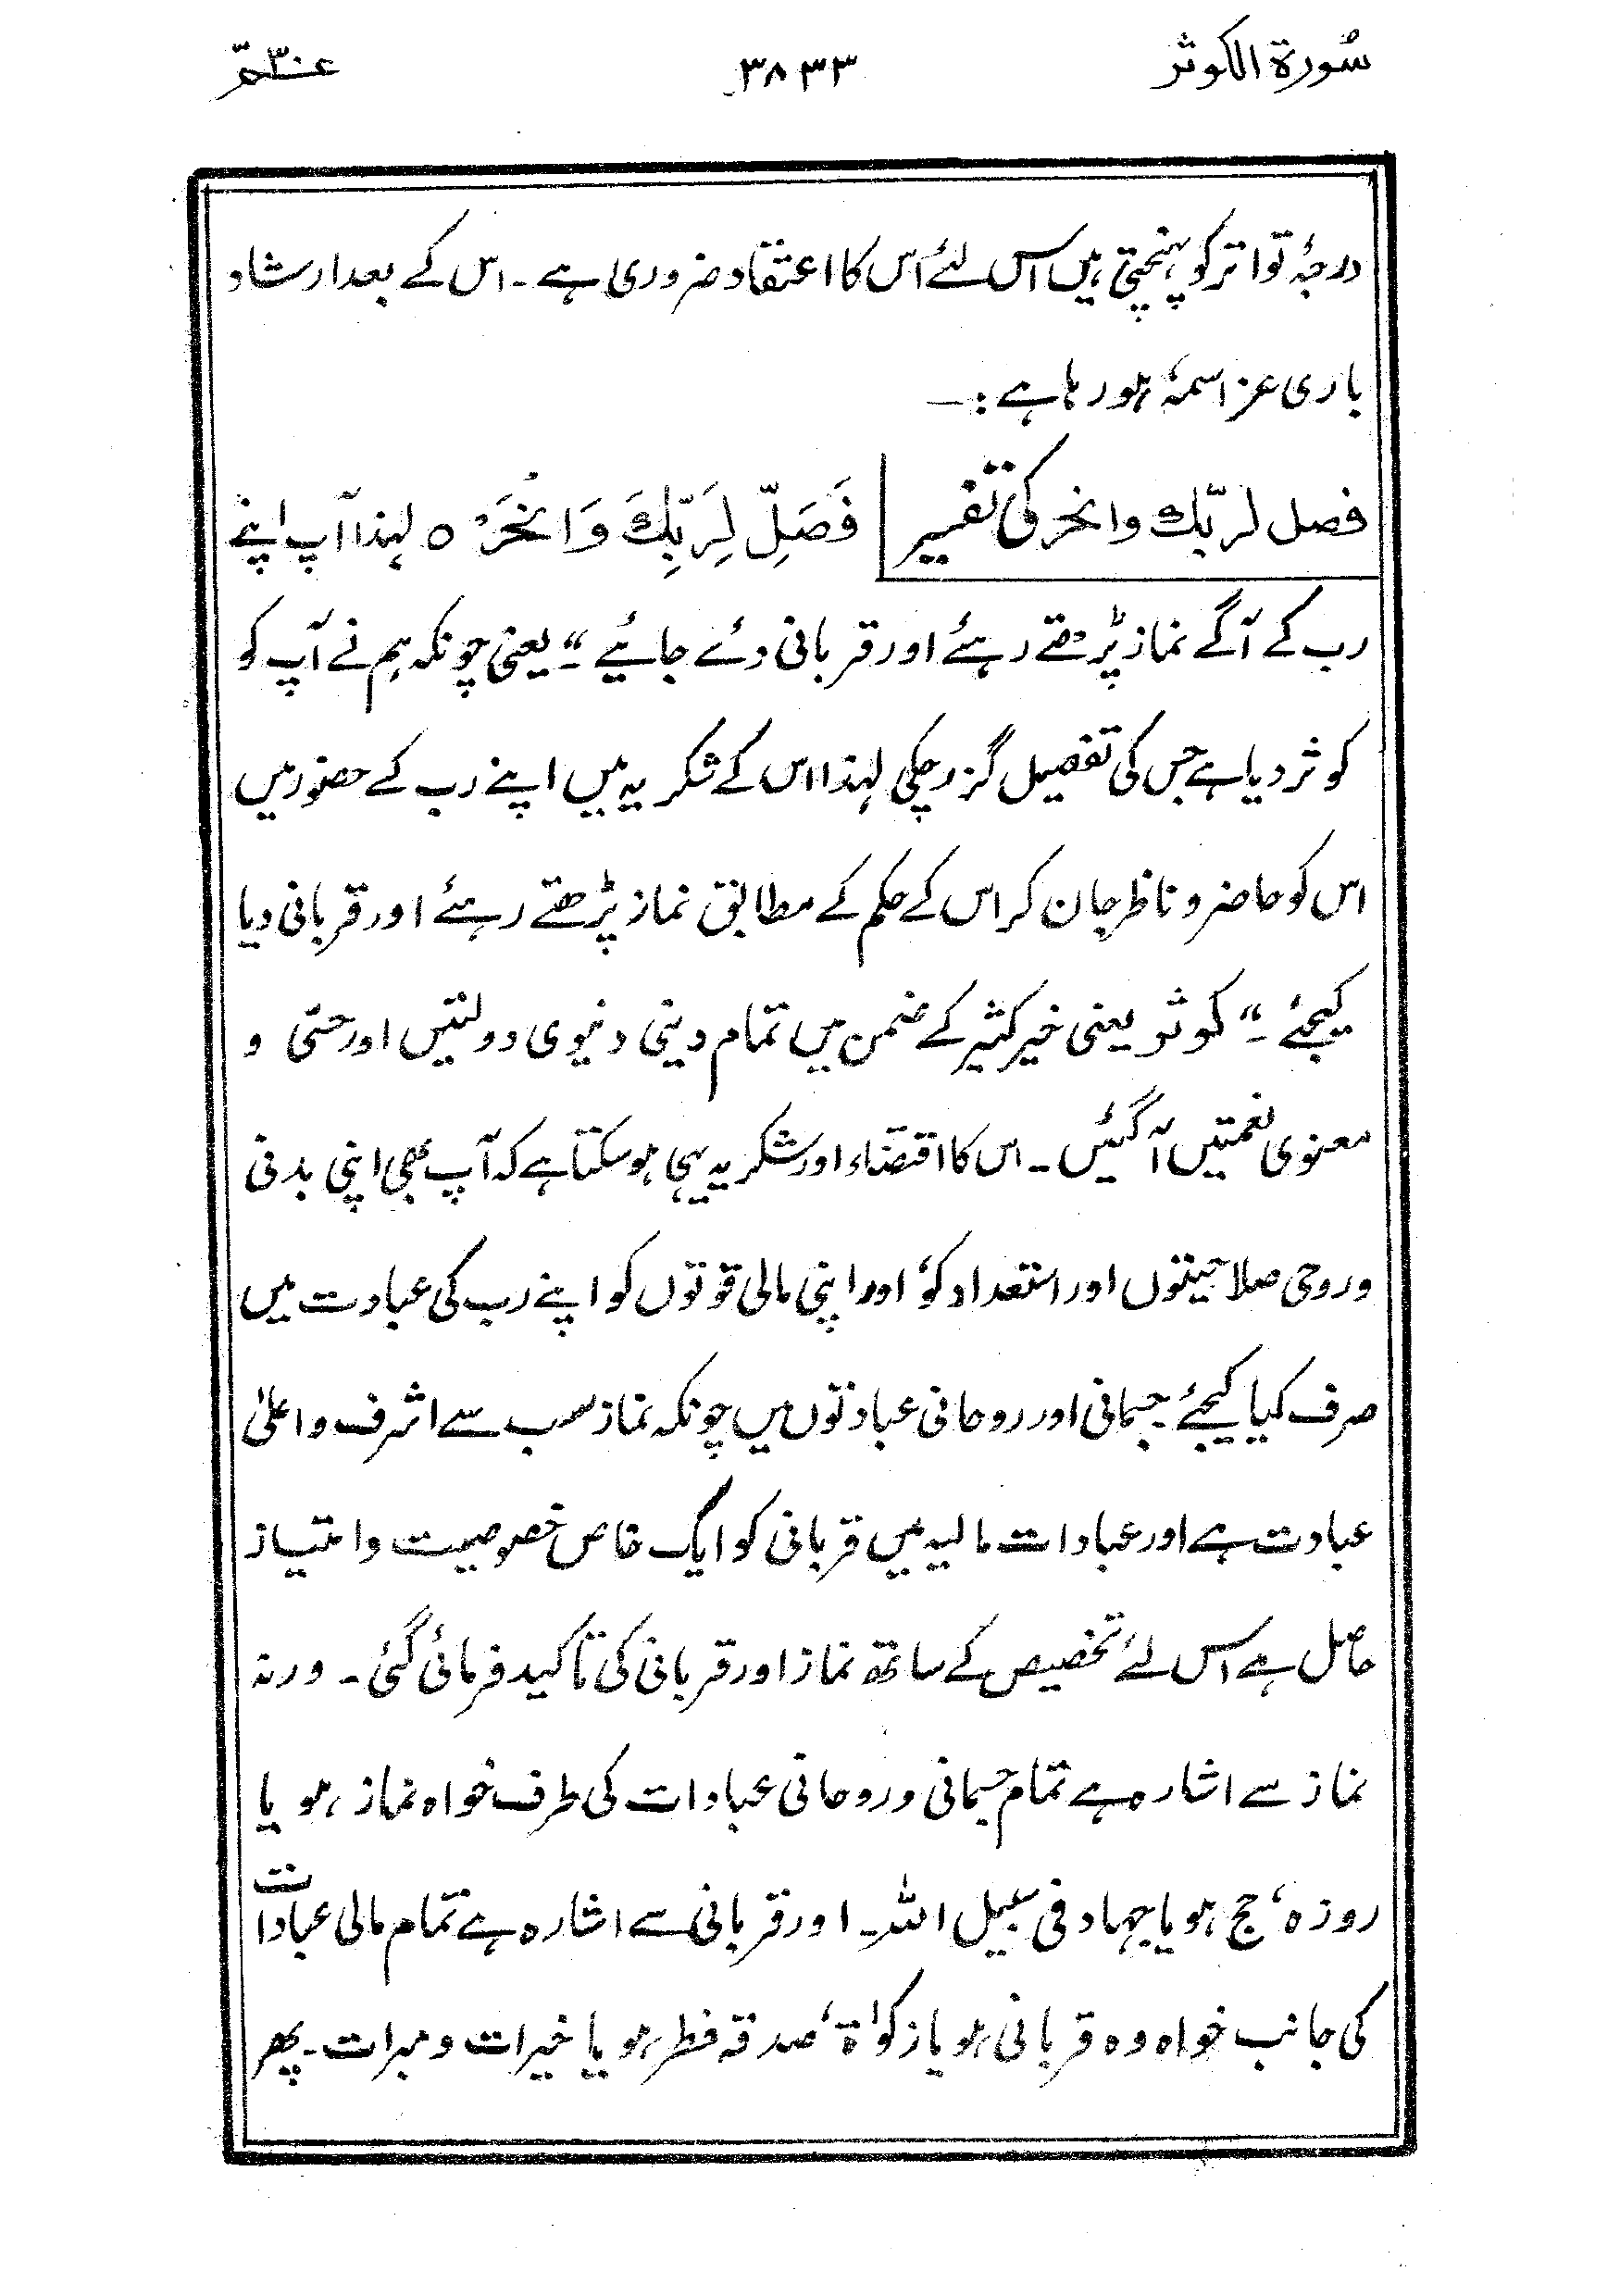 سُورة الکوثر
۳۸۳۳
عم ۳۰
درجۂ تواتر کو پہنچتی ہیں اس لئے اس کا اعتقاد ضروری ہے۔ اس کے بعد ارشاد
باری عز اسمہٗ ہو رہا ہے :—
فصل لربّك وانحر کی تفسیر فَصَلِّ لِرَبِّكَ وَانْحَرْ ہ لہٰذا آپ اپنے
رب کے آگے نماز پڑھتے رہئے اور قربانی دئے جائیے ۔“ یعنی چونکہ ہم نے آپ کو
کوثر دیا ہے جس کی تفصیل گزر چکی لہٰذا اس کے شکریہ میں اپنے رب کے حضور میں
اس کو حاضر و ناظر جان کر اس کے حکم کے مطابق نماز پڑھتے رہئے اور قربانی دیا
کیجئے ۔“ کوثر یعنی خیر کثیر کے ضمن میں تمام دینی دنیوی دولتیں اور حسّی و
معنوی نعمتیں آگئیں۔ اس کا اقتضاء اور شکریہ یہی ہو سکتا ہے کہ آپ بھی اپنی بدنی
و روحی صلاحیتوں اور استعداد کو‘ اور اپنی مالی قوتوں کو اپنے رب کی عبادت میں
صرف کیا کیجئے جسمانی اور روحانی عبادتوں میں چونکہ نماز سب سے اشرف و اعلیٰ
عبادت ہے اور عبادات مالیہ میں قربانی کو ایک خاص خصوصیت و امتیاز
حاصل ہے اس لئے تخصیص کے ساتھ نماز اور قربانی کی تاکید فرمائی گئی۔ ورنہ
نماز سے اشارہ ہے تمام جسمانی و روحانی عبادات کی طرف خواہ نماز ہو یا
روزہ‘ حج ہو یا جہاد فی سبیل اللہ۔ اور قربانی سے اشارہ ہے تمام مالی عبادات
کی جانب خواہ وہ قربانی ہو یا زکوٰۃ‘ صدقہ فطر ہو یا خیرات و مبرات۔ پھر